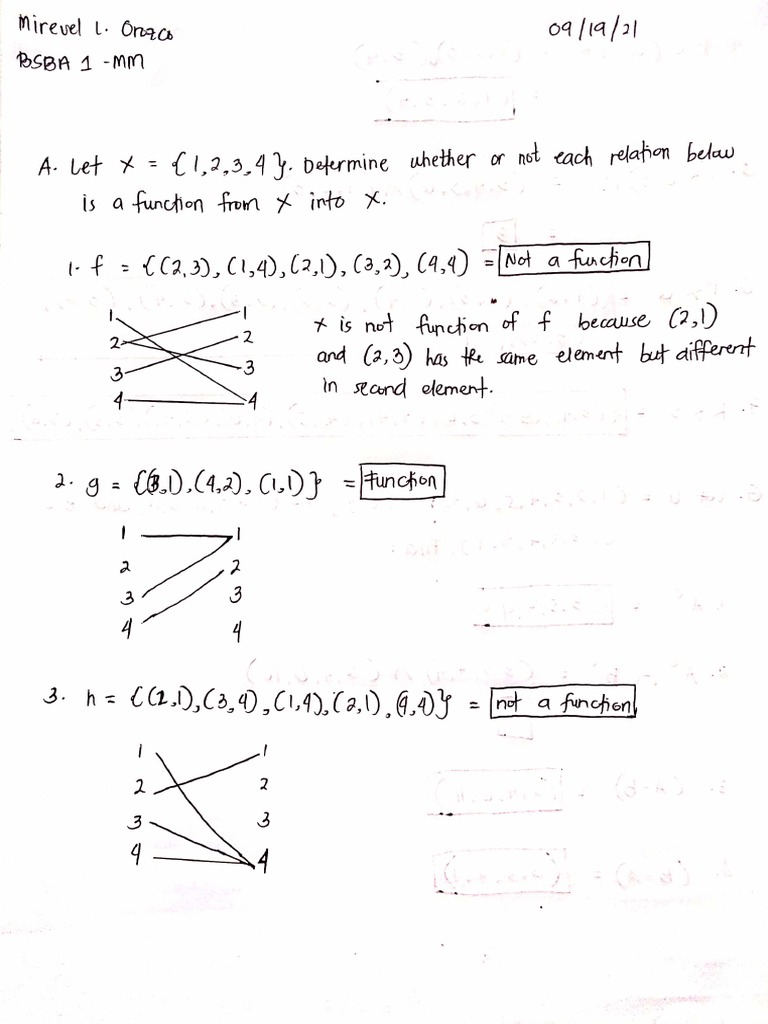 Mirevel L. Orozco
09/19/21
BSBA 1 - MM
A. Let X = {1,2,3,4}. Determine whether or not each relation below
is a function from X into X.
1. f = {(2,3), (1,4), (2,1), (3,2), (4,4) = Not a function
1 1
2 2
3 3
4 4
X is not function of f because (2,1)
and (2,3) has the same element but different
in second element.
2. g = {(3,1), (4,2), (1,1)} = Function
1 1
2 2
3 3
4 4
3. h = {(2,1), (3,4), (1,4), (2,1), (4,4)} = not a function
1 1
2 2
3 3
4 4